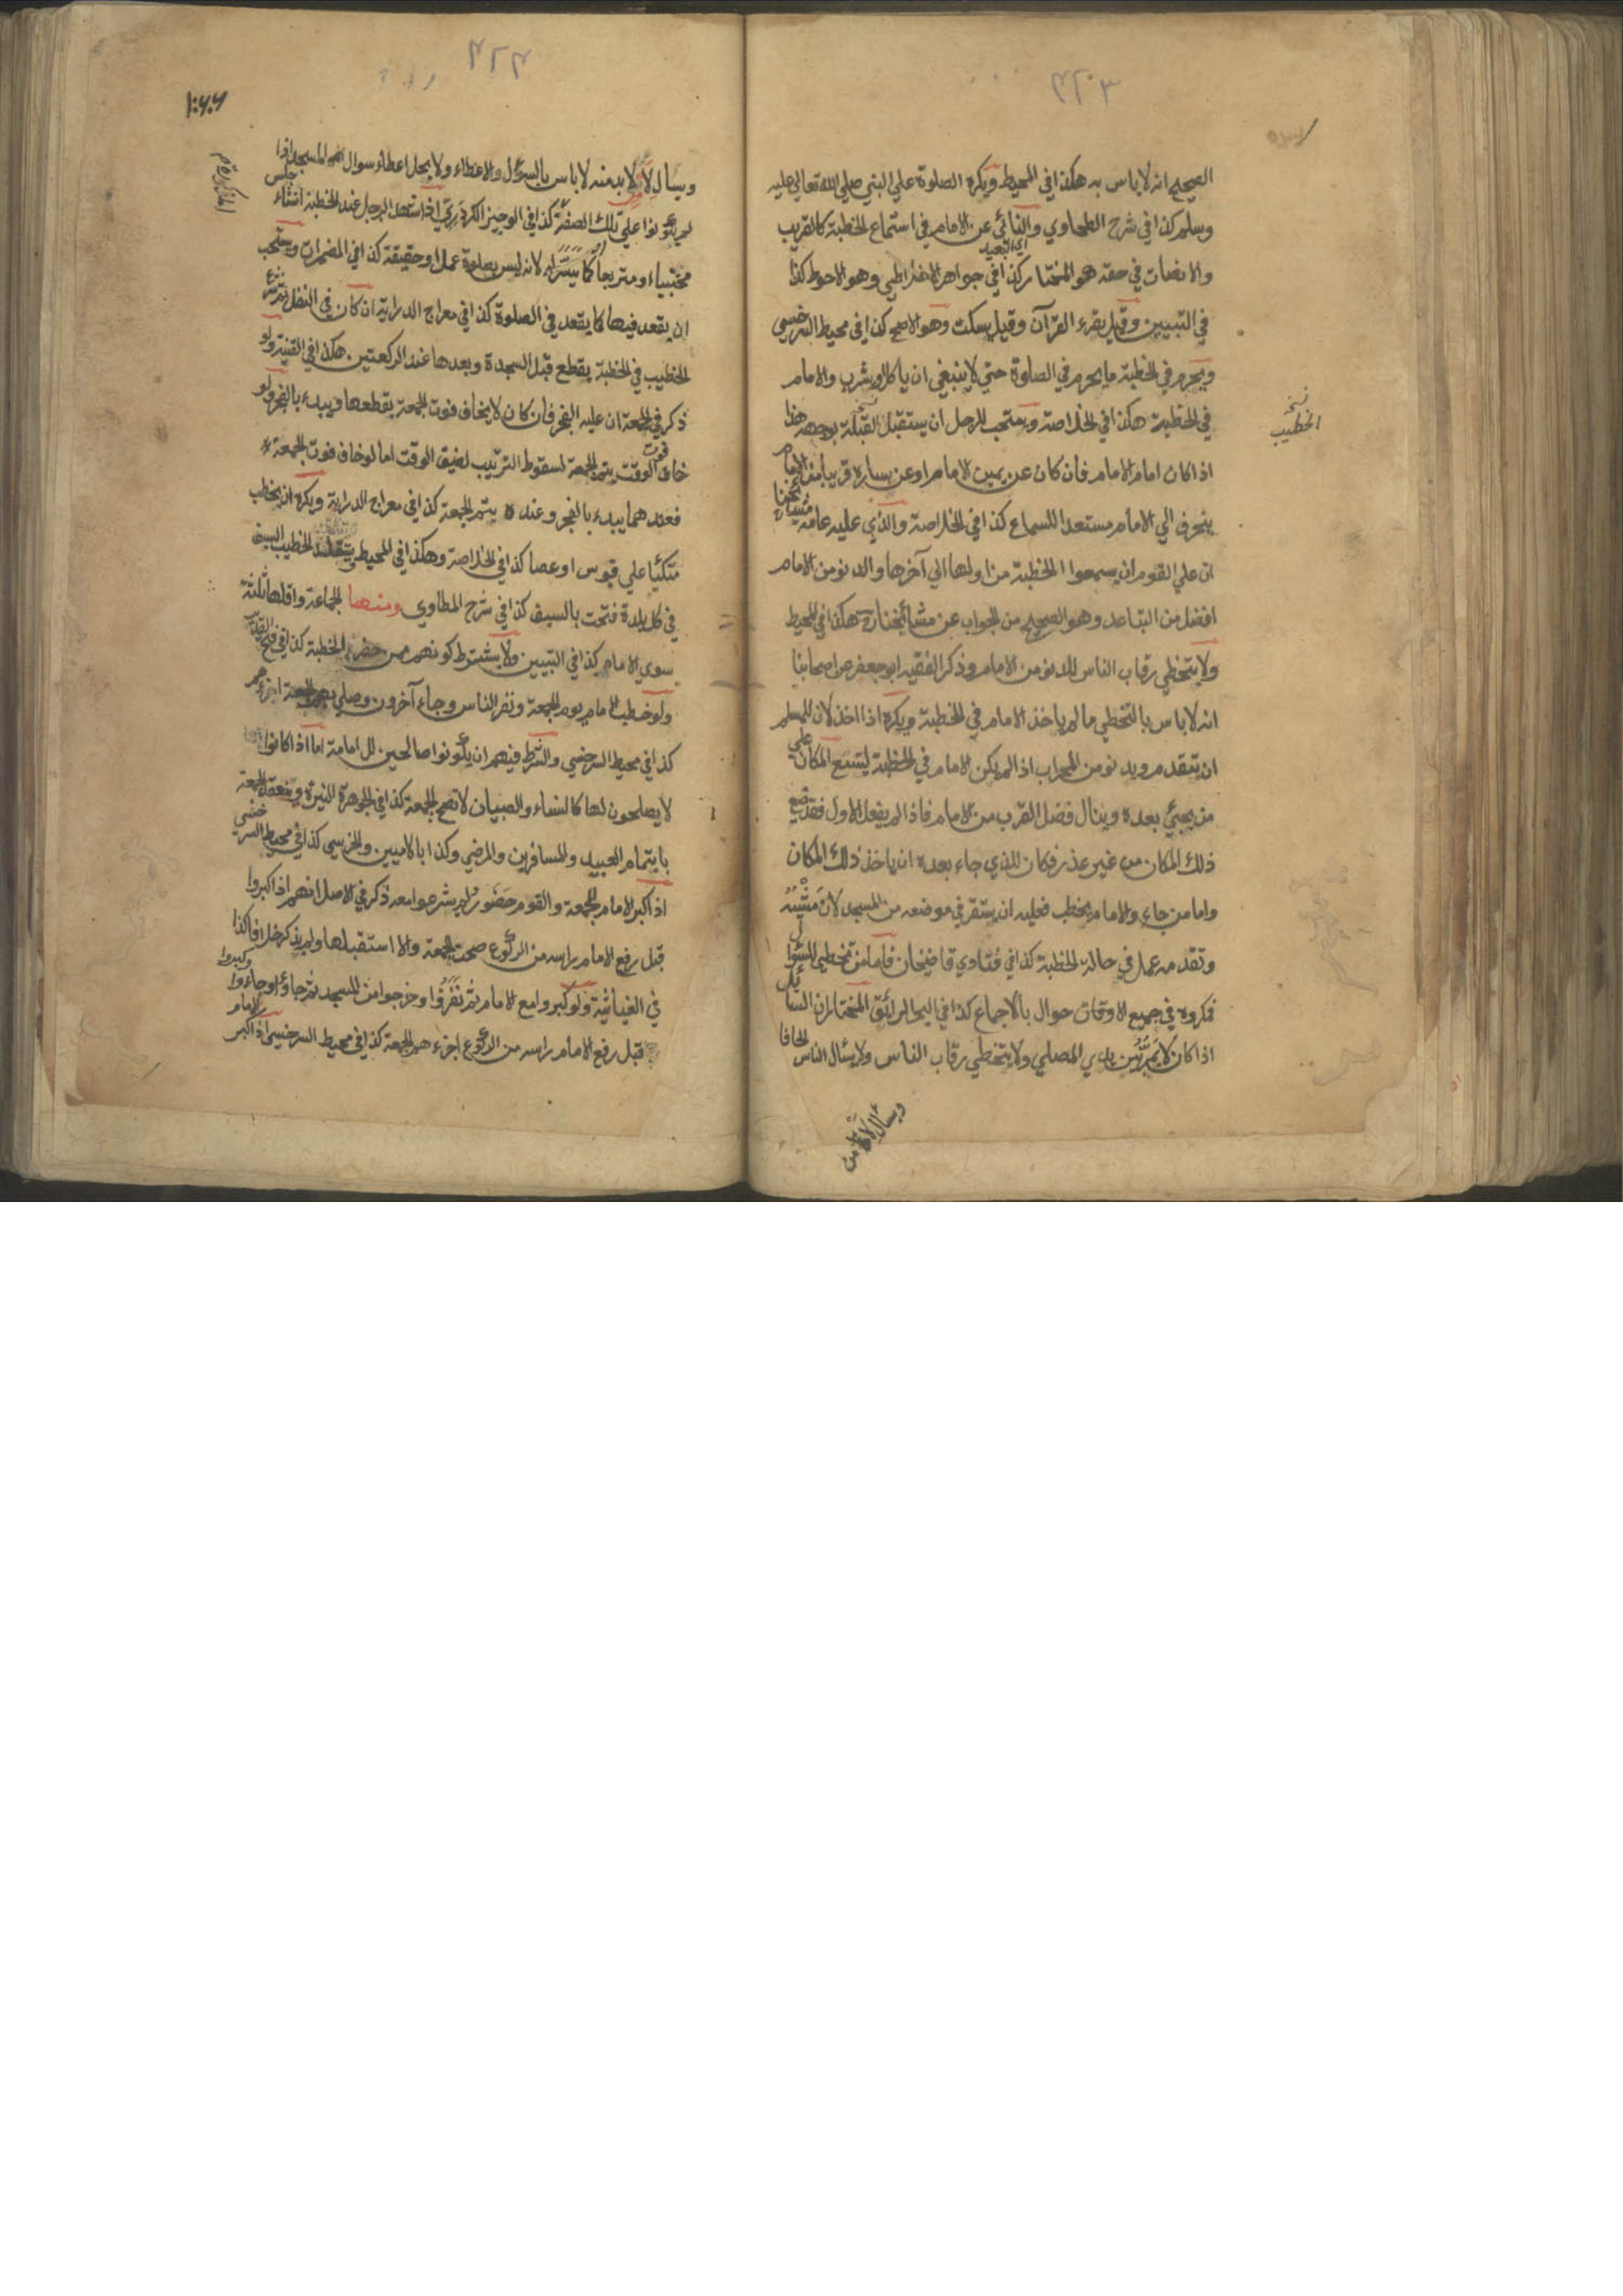 الصحيح انه لا باس به هكذا في المحيط ويكره الصلوة علي النبي صلي الله تعالي عليه
وسلم كذا في شرح الطحاوي والنائي عن الامام في استماع الخطبة كالقريب
اي البعيد
والانصات في حقه هو المختار كذا في جواهر الاخلاطي وهو الاحوط كذا
في التبيين وقيل يقرء القرآن وقيل يسكت وهو الاصح كذا في محيط السرخسي
ويحرم في الخطبة ما يحرم في الصلوة حتي لا ينبغي ان ياكل او يشرب والامام
في الخطبة هكذا في الخلاصة ويستحب للرجل ان يستقبل القبلة بوجهه هذا
نسخه
الخطيب
اذا كان امام الامام فان كان عن يمين الامام او عن يساره قريبا من الامام
ينحرف الي الامام مستعدا للسماع كذا في الخلاصة والذي عليه عامة مشايخنا
ان علي القوم ان يسمعوا الخطبة من اولها الي آخرها والدنو من الامام
افضل من التباعد وهو الصحيح من الجواب عن مشائخنا رح هكذا في المحيط
ولا يتخطي رقاب الناس للدنو من الامام وذكر الفقيه ابو جعفر عن اصحابنا
انه لا باس بالتخطي ما لم ياخذ الامام في الخطبة ويكره اذا اخذ لان للمسلم
ان يتقدم ويدنو من المحراب اذا لم يكن الامام في الخطبة ليتسع المكان علي
من يجيئ بعده وينال فضل القرب من الامام فاذا لم يفعل الاول فقد ضيع
ذلك المكان من غير عذر فكان للذي جاء بعده ان ياخذ ذلك المكان
واما من جاء والامام يخطب فعليه ان يستقر في موضعه من المسجد لان مشيه
وتقدمه عمل في حالة الخطبة كذا في فتاوي قاضيخان فاما من تخطي للسؤال
فمكروه في جميع الاوقات حوال بالاجماع كذا في البحر الرائق المختار ان السائل
اذا كان لا يمر بين يدي المصلي ولا يتخطي رقاب الناس ولا يسئال الناس الحافا
ويسأل لا من
ويسأل لا لا بد منه لا باس بالسؤال والاعطاء ولا يحل اعطاء سوال المسجد اذا
لم يكونوا علي تلك الصفة كذا في الوجيز الكردري اذا شهد الرجل عند الخطبة انشاء جلس
محتبياء ومتربعا او كما تيسر له لانه ليس بصلوة عملا وحقيقة كذا في المضمرات ويستحب
ان يقعد فيها كما يقعد في الصلوة كذا في معراج الدراية ان كان في النفل ثم شرع
الخطيب في الخطبة يقطع قبل السجدة وبعدها عند الركعتين هكذا في القنية ولو
ذكر في الجمعة ان عليه الفجر فان كان لا يخاف فوت الجمعة يقطعها ويبدء بالفجر ولو
خاف فوت الوقت يتم الجمعة لسقوط الترتيب لضيق الوقت اما لو خاف فوت الجمعة
فعندهما يبدء بالفجر وعنده يتم الجمعة كذا في معراج الدراية ويكره ان يخطب
متكئيا علي قوس او عصا كذا في الخلاصة وهكذا في المحيط ويتقلد الخطيب السيف
في كل بلدة فتحت بالسيف كذا في شرح الطاوي ومنها الجماعة واقلها ثلثة
سوي الامام كذا في التبيين ولا يشترط كونهم ممن حضر الخطبة كذا في فتح القدير
ولو خطب الامام يوم الجمعة ونفر الناس وجاء آخرون وصلي بهم الجمعة اجزءهم
كذا في محيط السرخسي والشرط فيهم ان يكونوا صالحين للامامة اما اذا كانوا
لا يصلحون لها كالنساء والصبيان لا تصح الجمعة كذا في الجوهرة النيرة وينعقد الجمعة
بايتمام العبيد والمسافرين والمرضي وكذا بالاميين والخرسي كذا في محيط السرخسي
اذا كبر الامام للجمعة والقوم حضور لم يشرعوا معه ذكر في الاصل انهم اذا كبروا
قبل رفع الامام راسه من الركوع صحت الجمعة والا استقبلها ولم يذكر خلافا كذا
في الغياثية ولو كبروا مع الامام ثم نفروا وخرجوا من المسجد ثم جاؤا وكبروا
قبل رفع الامام راسه من الركوع اجزءهم الجمعة كذا في محيط السرخسي اذا كبر الامام